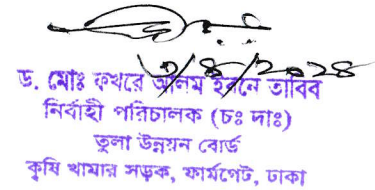 ৩/৪/২০২৪
ড. মোঃ ফখরে আলম ইবনে তাবিব
নির্বাহী পরিচালক (চঃ দাঃ)
তুলা উন্নয়ন বোর্ড
কৃষি খামার সড়ক, ফার্মগেট, ঢাকা